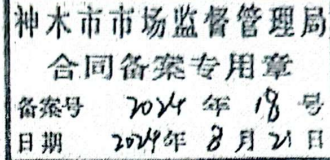 神木市市场监督管理局
合同备案专用章
备案号 2024 年 18 号
日期 2024年 8 月 21 日